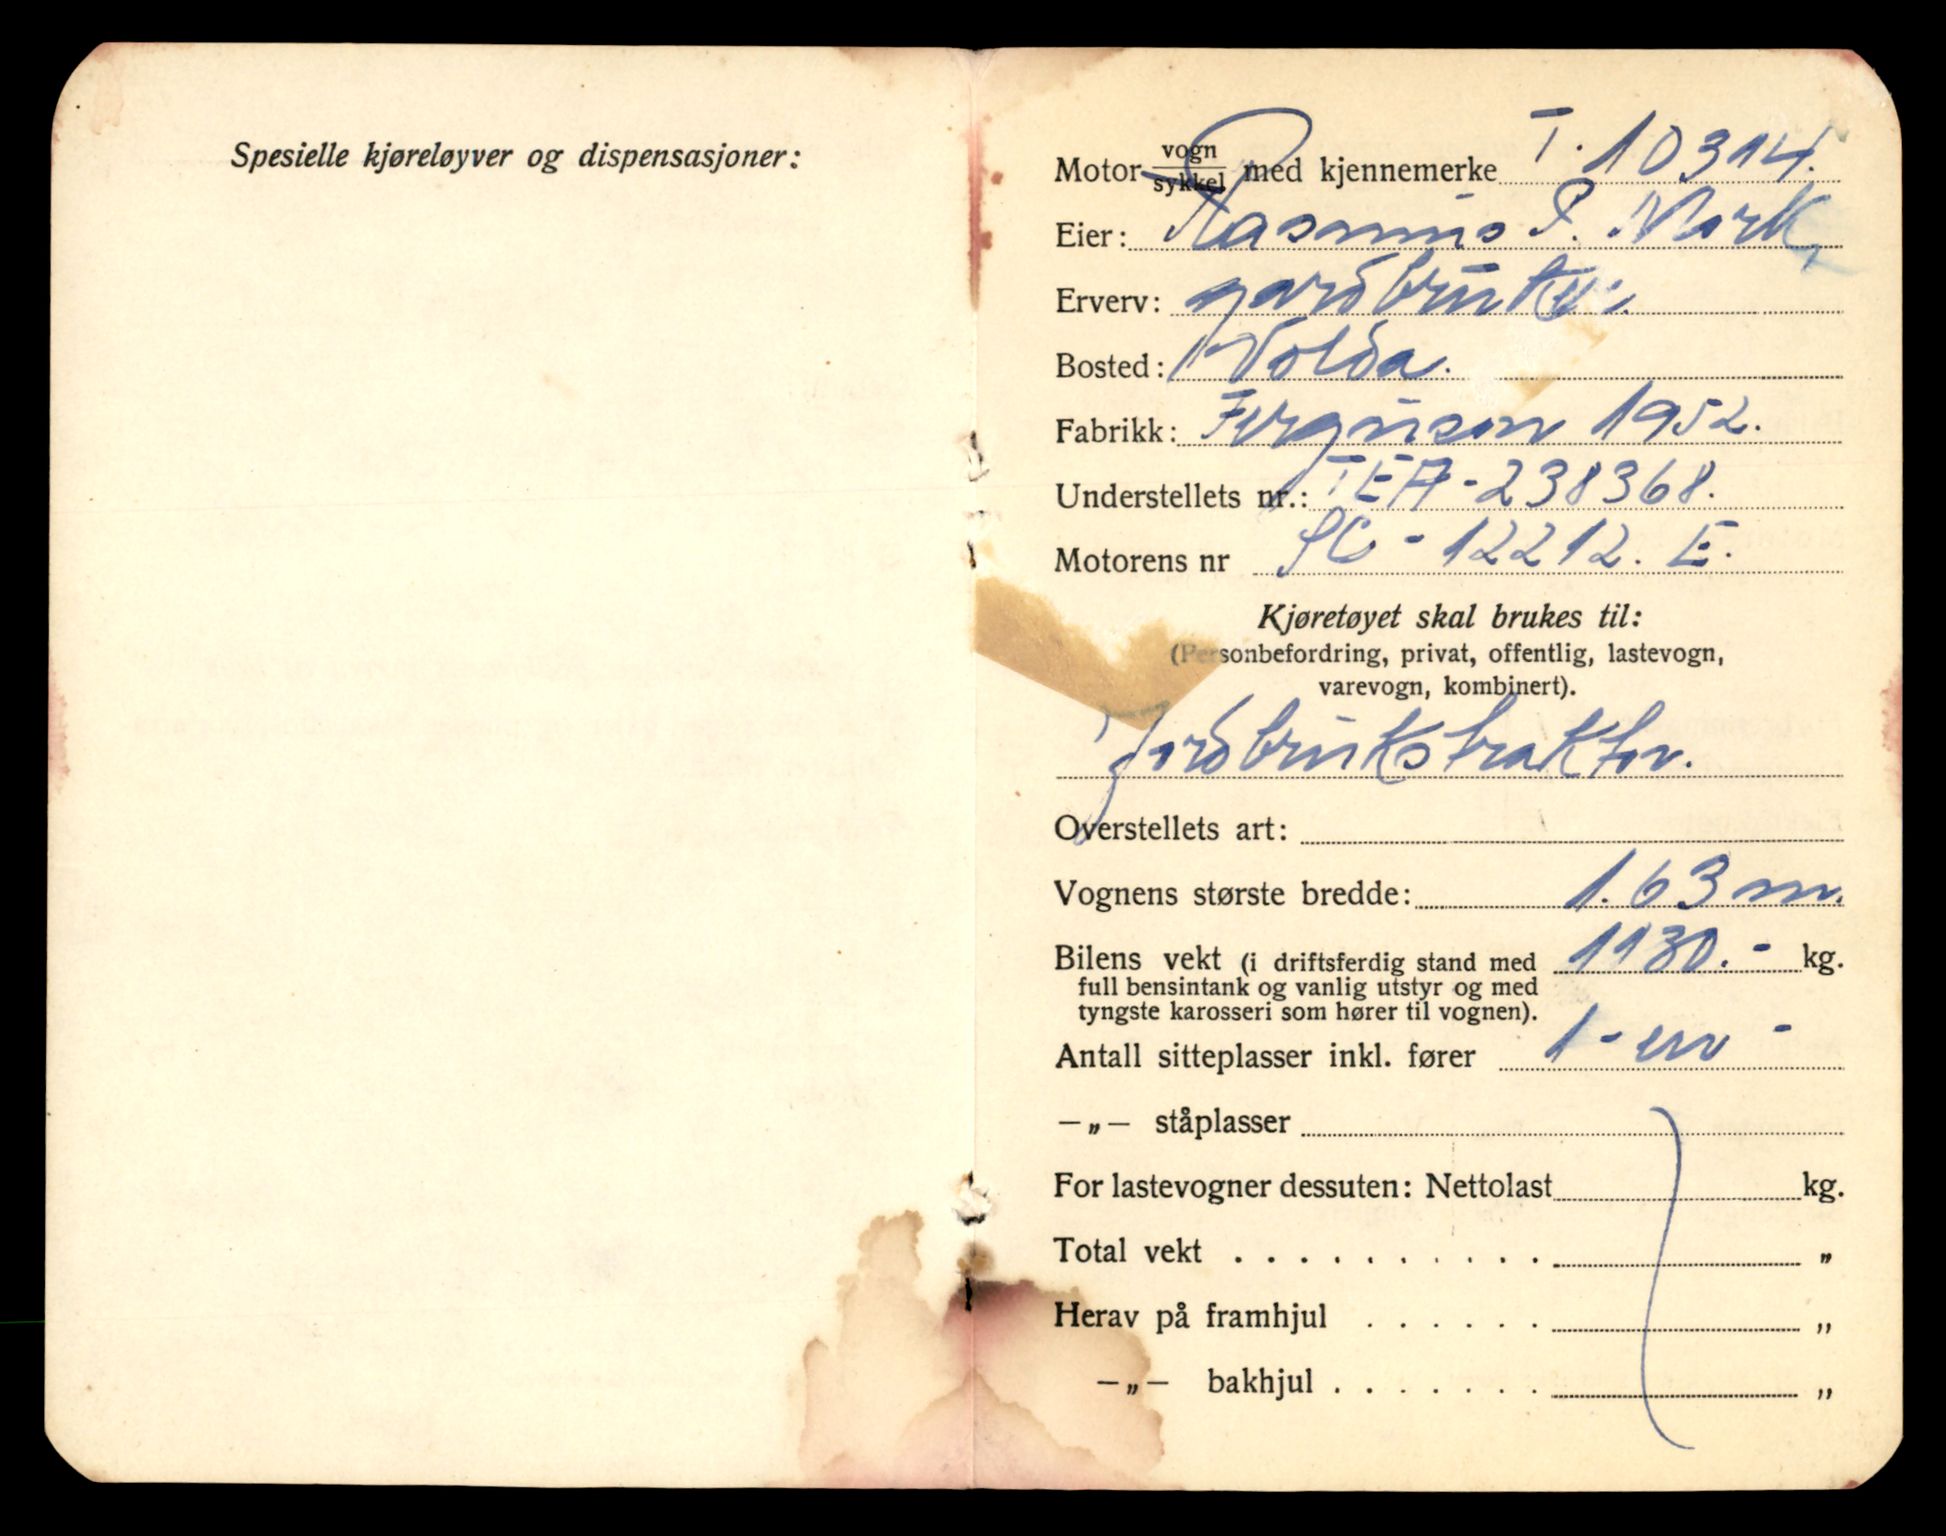 Spesielle kjøreløyver og dispensasjoner:
Motor vogn/sykkel med kjennemerke T. 10314.
Eier: Rasmus P. Mork,
Erverv: gardbruker.
Bosted: Volda.
Fabrikk: Ferguson 1952.
Understellets nr.: TEA-238368.
Motorens nr SC-12212. E.
Kjøretøyet skal brukes til:
(Personbefordring, privat, offentlig, lastevogn,
varevogn, kombinert).
Jordbrukstraktor.
Overstellets art:
Vognens største bredde: 1.63 m.
Bilens vekt (i driftsferdig stand med 1130.- kg.
full bensintank og vanlig utstyr og med
tyngste karosseri som hører til vognen).
Antall sitteplasser inkl. fører 1 - en -
—„— ståplasser
For lastevogner dessuten: Nettolast kg.
Total vekt . . . . . . . . . . „
Herav på framhjul . . . . . . „
—„— bakhjul . . . . . . . „